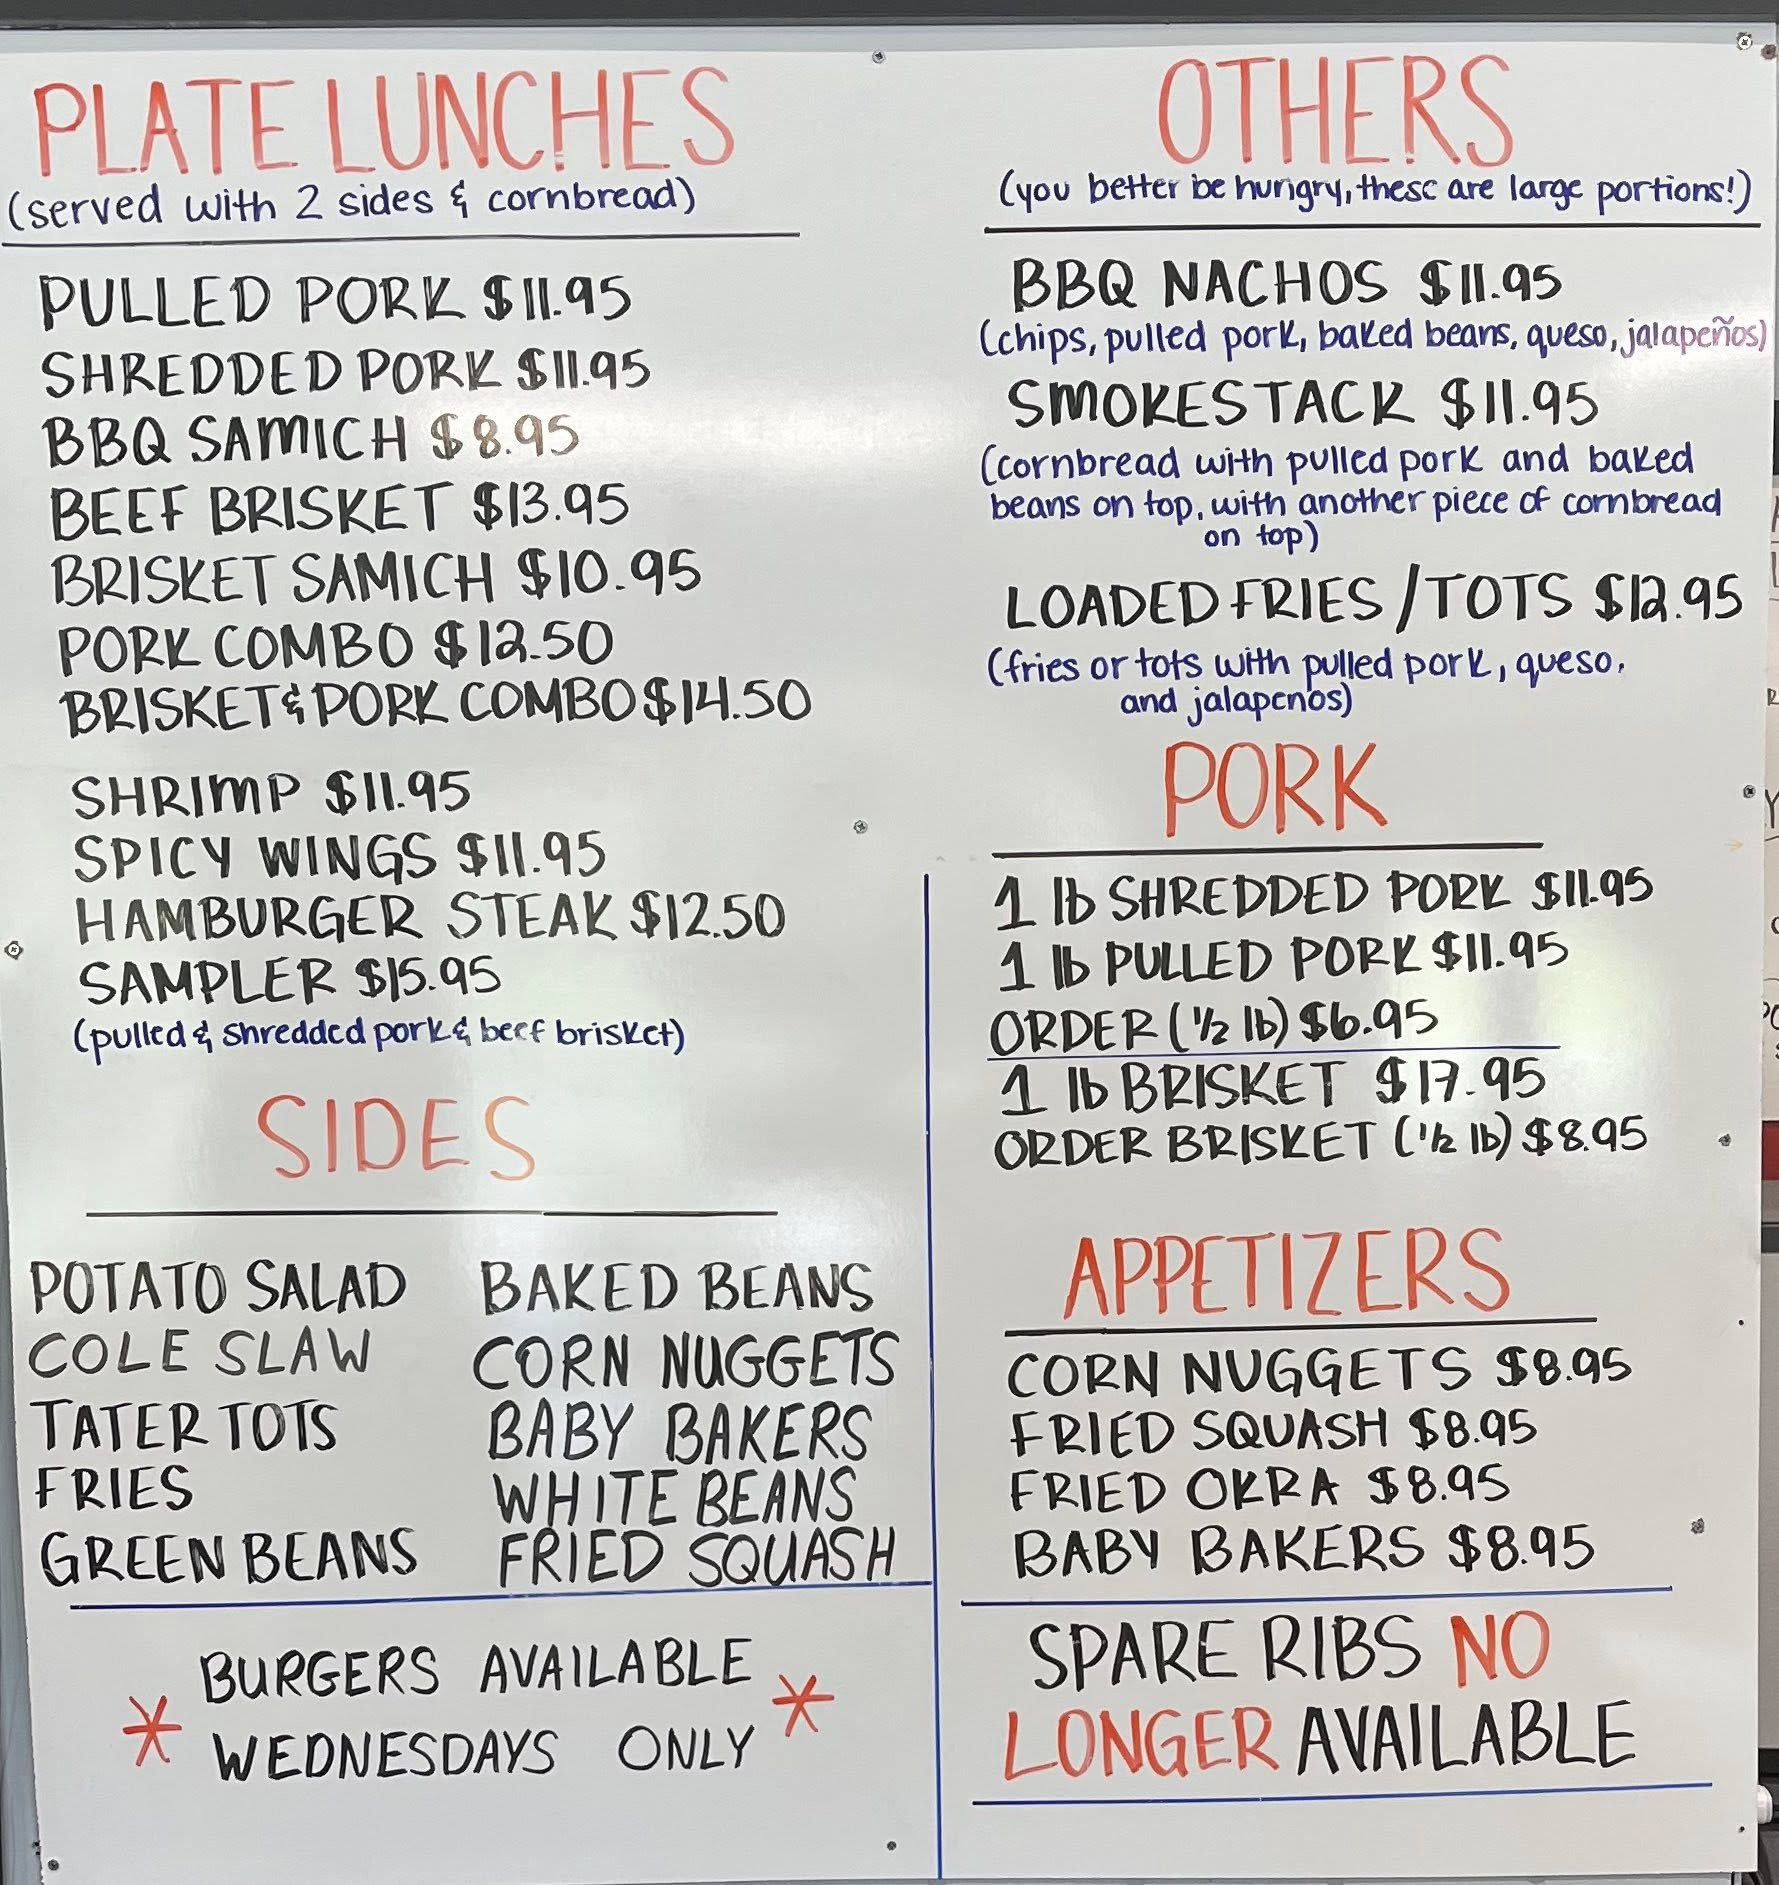 PLATE LUNCHES
(served with 2 sides & cornbread)
PULLED PORK $11.95
SHREDDED PORK $11.95
BBQ SAMICH $8.95
BEEF BRISKET $13.95
BRISKET SAMICH $10.95
PORK COMBO $12.50
BRISKET & PORK COMBO $14.50
SHRIMP $11.95
SPICY WINGS $11.95
HAMBURGER STEAK $12.50
SAMPLER $15.95
(pulled & shredded pork & beef brisket)
SIDES
POTATO SALAD
COLE SLAW
TATER TOTS
FRIES
GREEN BEANS
BAKED BEANS
CORN NUGGETS
BABY BAKERS
WHITE BEANS
FRIED SQUASH
* BURGERS AVAILABLE *
WEDNESDAYS ONLY
OTHERS
(you better be hungry, these are large portions!)
BBQ NACHOS $11.95
(chips, pulled pork, baked beans, queso, jalapeños)
SMOKESTACK $11.95
(cornbread with pulled pork and baked
beans on top, with another piece of cornbread
on top)
LOADED FRIES / TOTS $12.95
(fries or tots with pulled pork, queso,
and jalapenos)
PORK
1 lb SHREDDED PORK $11.95
1 lb PULLED PORK $11.95
ORDER (1/2 lb) $6.95
1 lb BRISKET $17.95
ORDER BRISKET (1/2 lb) $8.95
APPETIZERS
CORN NUGGETS $8.95
FRIED SQUASH $8.95
FRIED OKRA $8.95
BABY BAKERS $8.95
SPARE RIBS NO
LONGER AVAILABLE